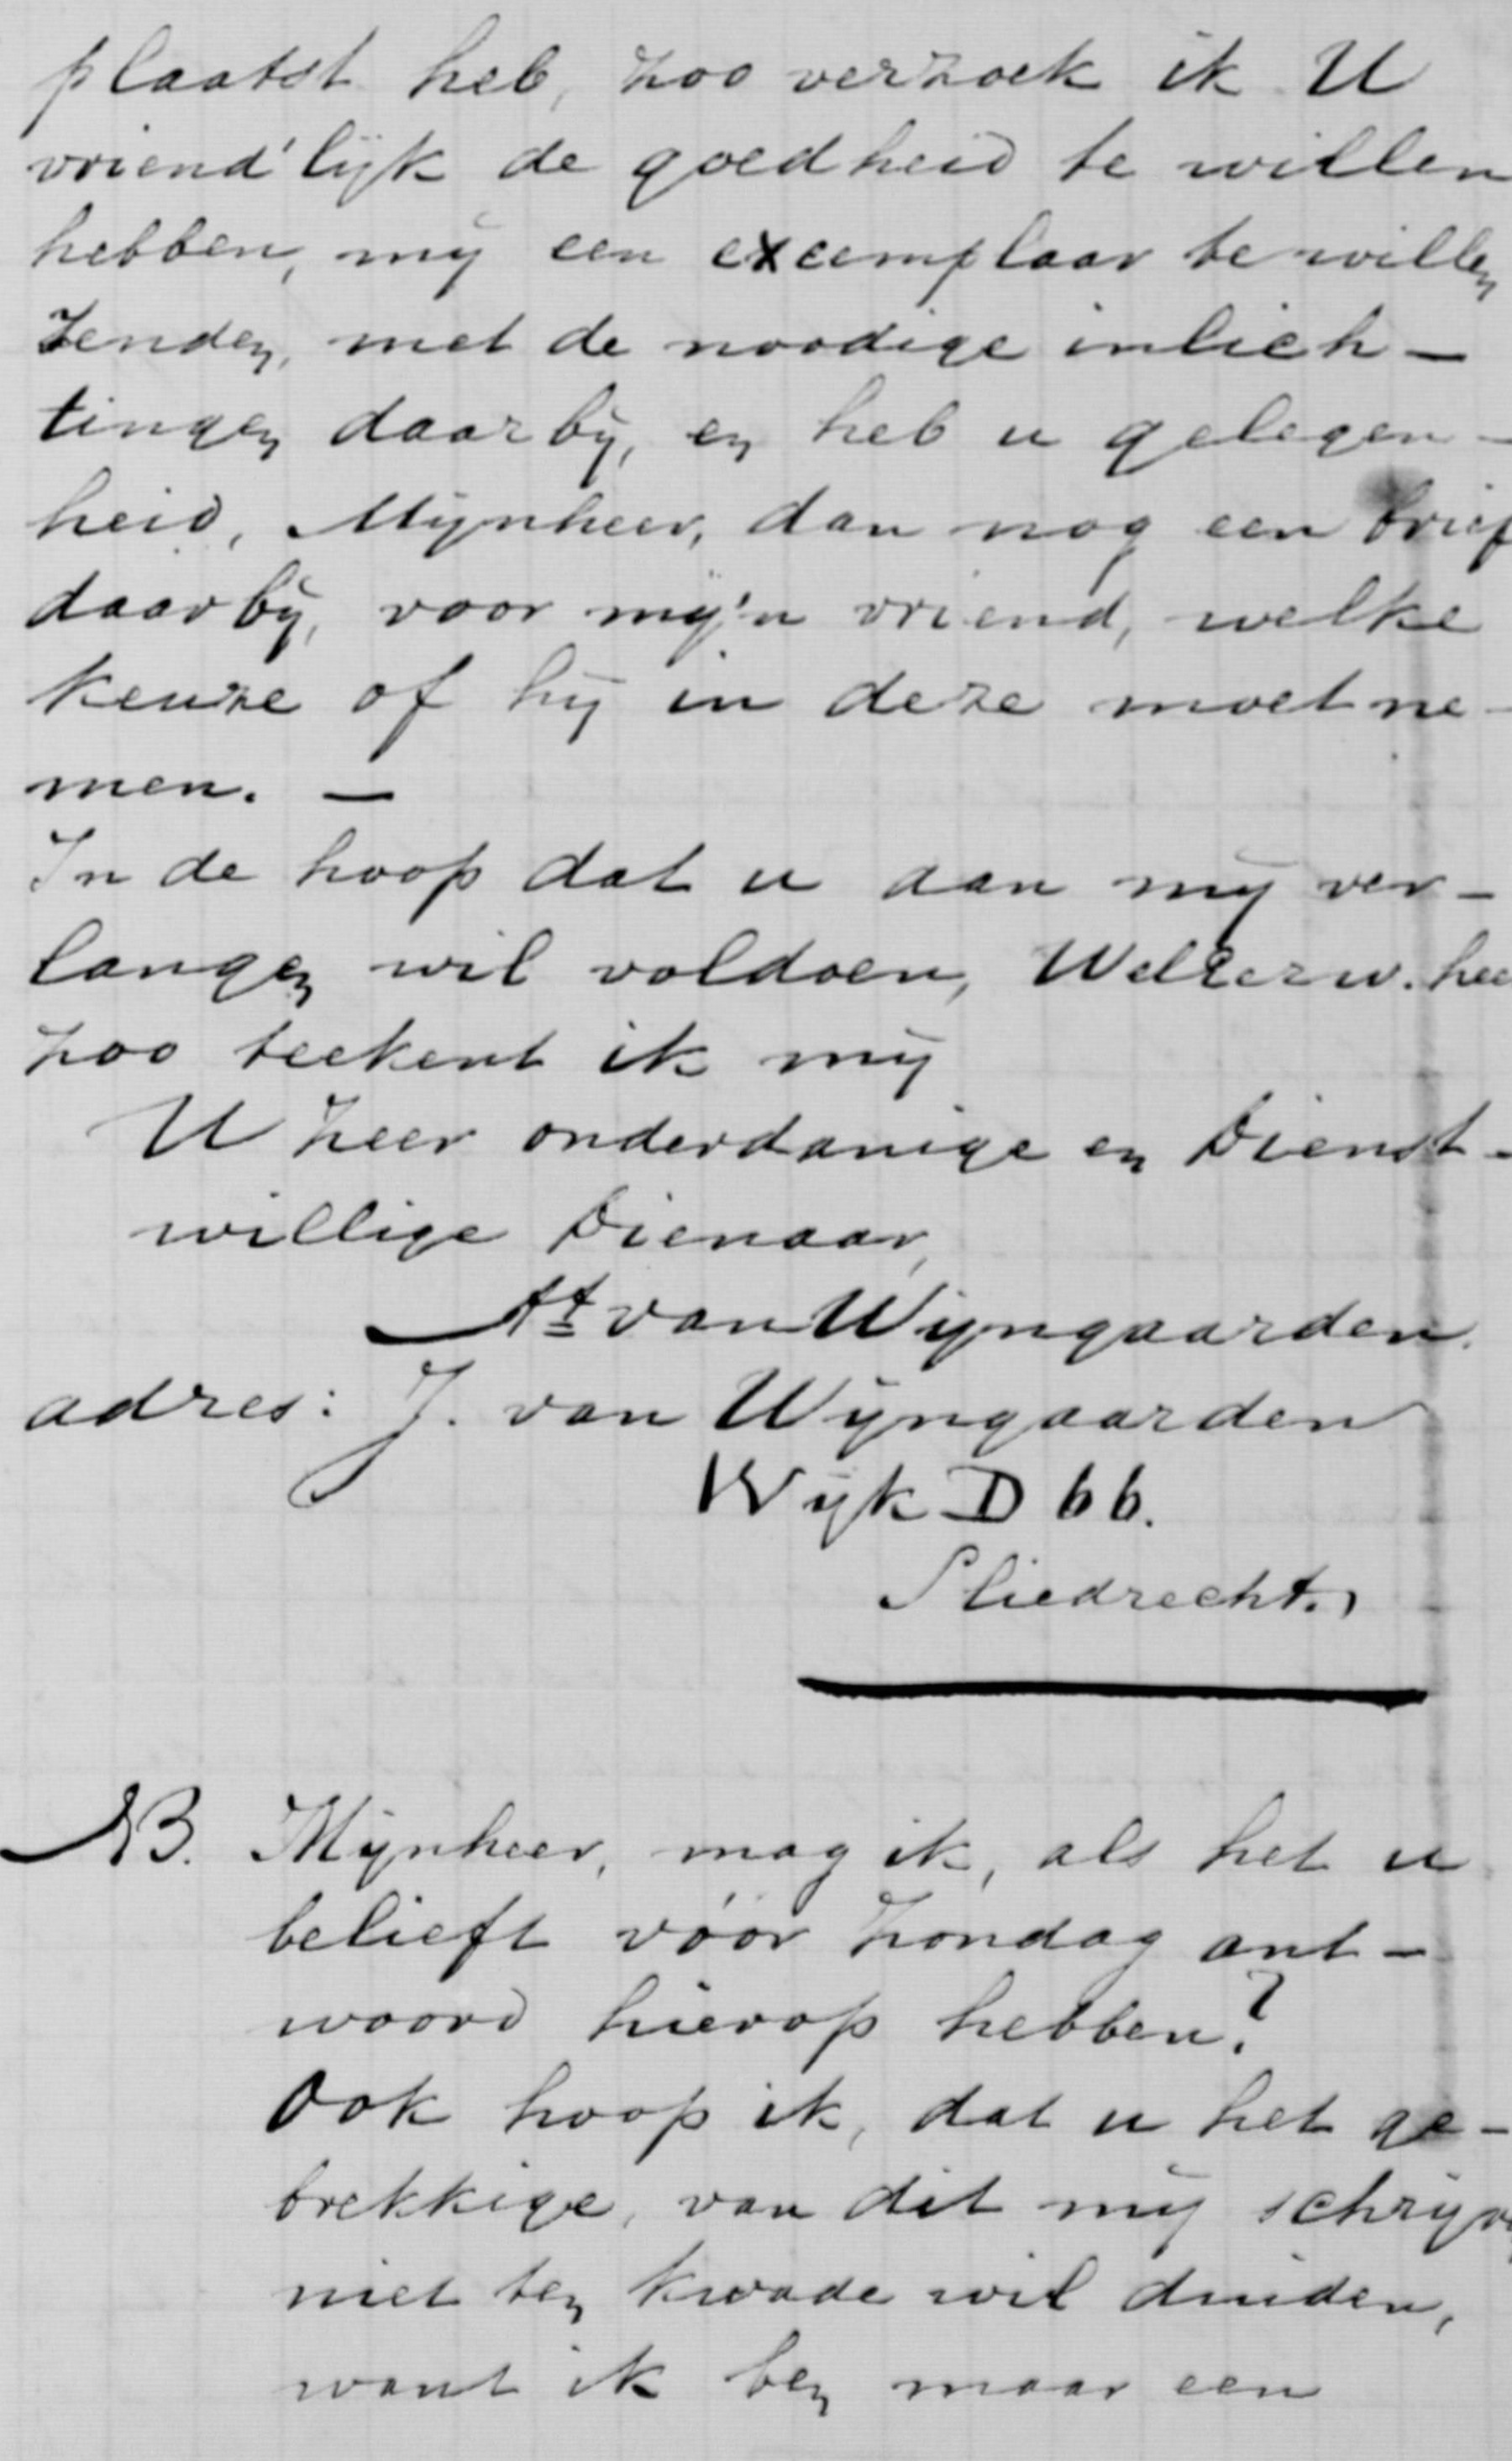 plaatst heb, zoo verzoek ik U
vriend'lijk de goedheid te willen
hebben, mij een exeemplaar te willen
zenden, met de noodige inlich-
tingen daarbij, en heb u gelegen-
heid, Mijnheer, dan nog een brief
daarbij, voor mij'n vriend, welke
keuze of hij in deze moet ne-
men. —
In de hoop dat u aan mij ver-
langen wil voldoen, Welzerw. hee
zoo teekent ik mij
U zeer onderdanige en Dienst-
willige Dienaar,
At van Wijngaarden.
adres: J. van Wijngaarden
Wijk D 66.
Sliedrecht.
NB. Mijnheer, mag ik, als het u
belieft vóór Zondag ant-
woord hierop hebben?
Ook hoop ik, dat u het ge-
brekkige, van dit mij schrijv
niet ten kwade wil duiden,
want ik ben maar een